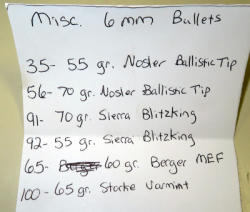 Misc. 6mm Bullets
35- 55 gr. Nosler Ballistic Tip
56- 70 gr. Nosler Ballistic Tip
91- 70 gr. Sierra Blitzking
92- 55 gr. Sierra Blitzking
65- 60 gr. Berger MEF
100- 65 gr. Starke Varmint